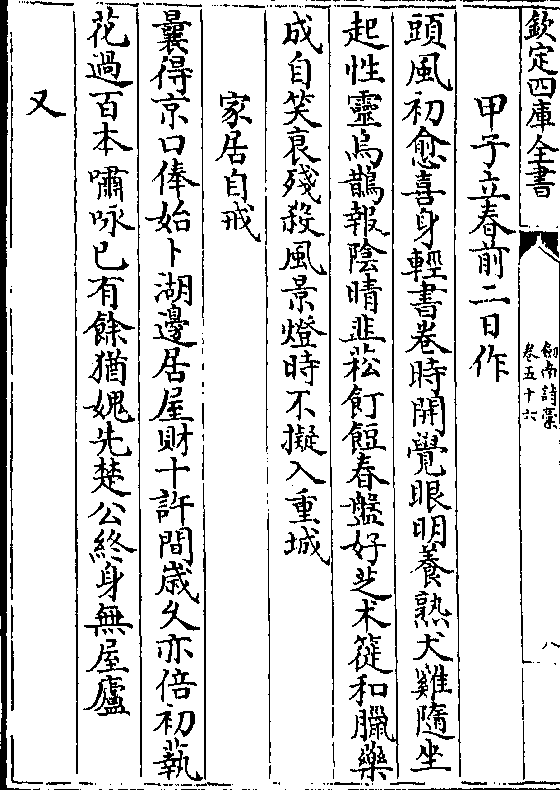 欽定四庫全書
劍南詩藁
卷五十六
八
甲子立春前二日作
頭風初愈喜身輕書卷時開覺眼明養熟犬雞隨坐
起性靈烏鵲報陰晴韭菘飣餖春盤好芝术簁和臘藥
成自笑衰殘殺風景燈時不擬入重城
家居自戒
曩得京口俸始卜湖邊居屋財十許間歲久亦倍初蓺
花過百本嘯咏已有餘猶媿先楚公終身無屋廬
又